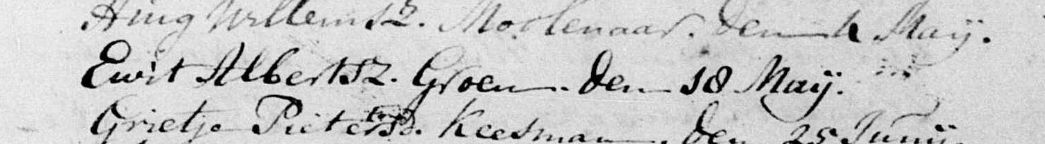 Willemsz. Moolenaar. den 4 Maij.
Ewit Albertsz. Groen. den 18 Maij.
Grietje Pieters. Keesman. den 25 Junij.